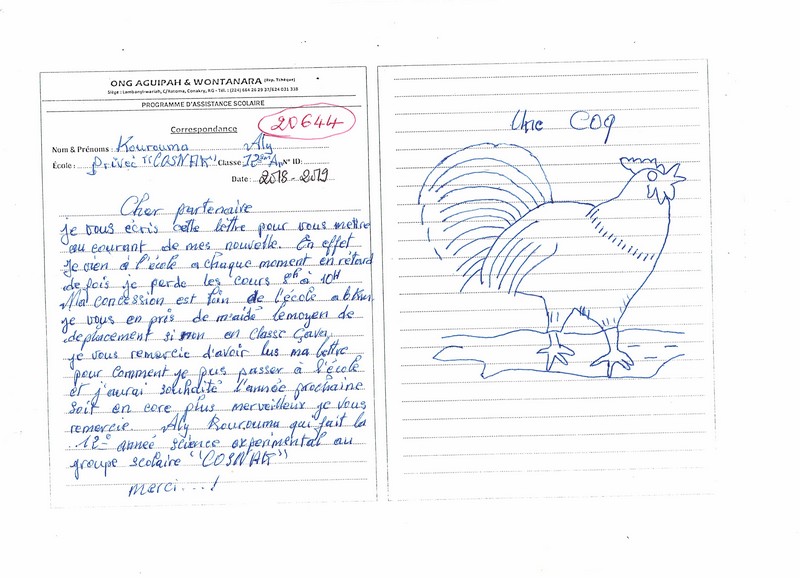 ONG AGUIPAH & WONTANARA (Rep. Tchèque)
Siège : Lambanyi-wariah, C/Ratoma, Conakry, RG - Tél. : (224) 664 26 29 37/624 031 338
PROGRAMME D'ASSISTANCE SCOLAIRE
Correspondance
20644
Nom & Prénoms : Kourouma Aly
École : Privée "COSNAK" Classe 12ème A N° ID:
Date : 2018 - 2019
Cher partenaire
je vous écris cette lettre pour vous mettre
au courant de mes nouvelle. En effet
je vien à l'école a chaque moment en retard
defois je perde les cours 8h à 10H
Ma concession est loin de l'école a 6km.
je vous en pris de m'aidé lemoyen de
deplacement sinon en classe çava.
je vous remercie d'avoir lus ma lettre
pour comment je puis passer à l'école
et j'aurai souhaité l'année prochaine
soit en core plus merveilleux je vous
remercie. Aly Kourouma qui fait la
12e année science experimental au
groupe scolaire "COSNAK"
merci...!
Une COQ